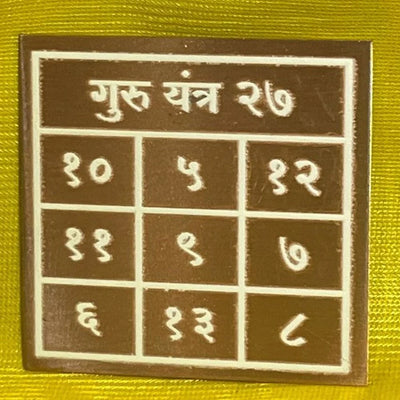 गुरु यंत्र २७
१० ५ १२
११ ९ ७
६ १३ ८